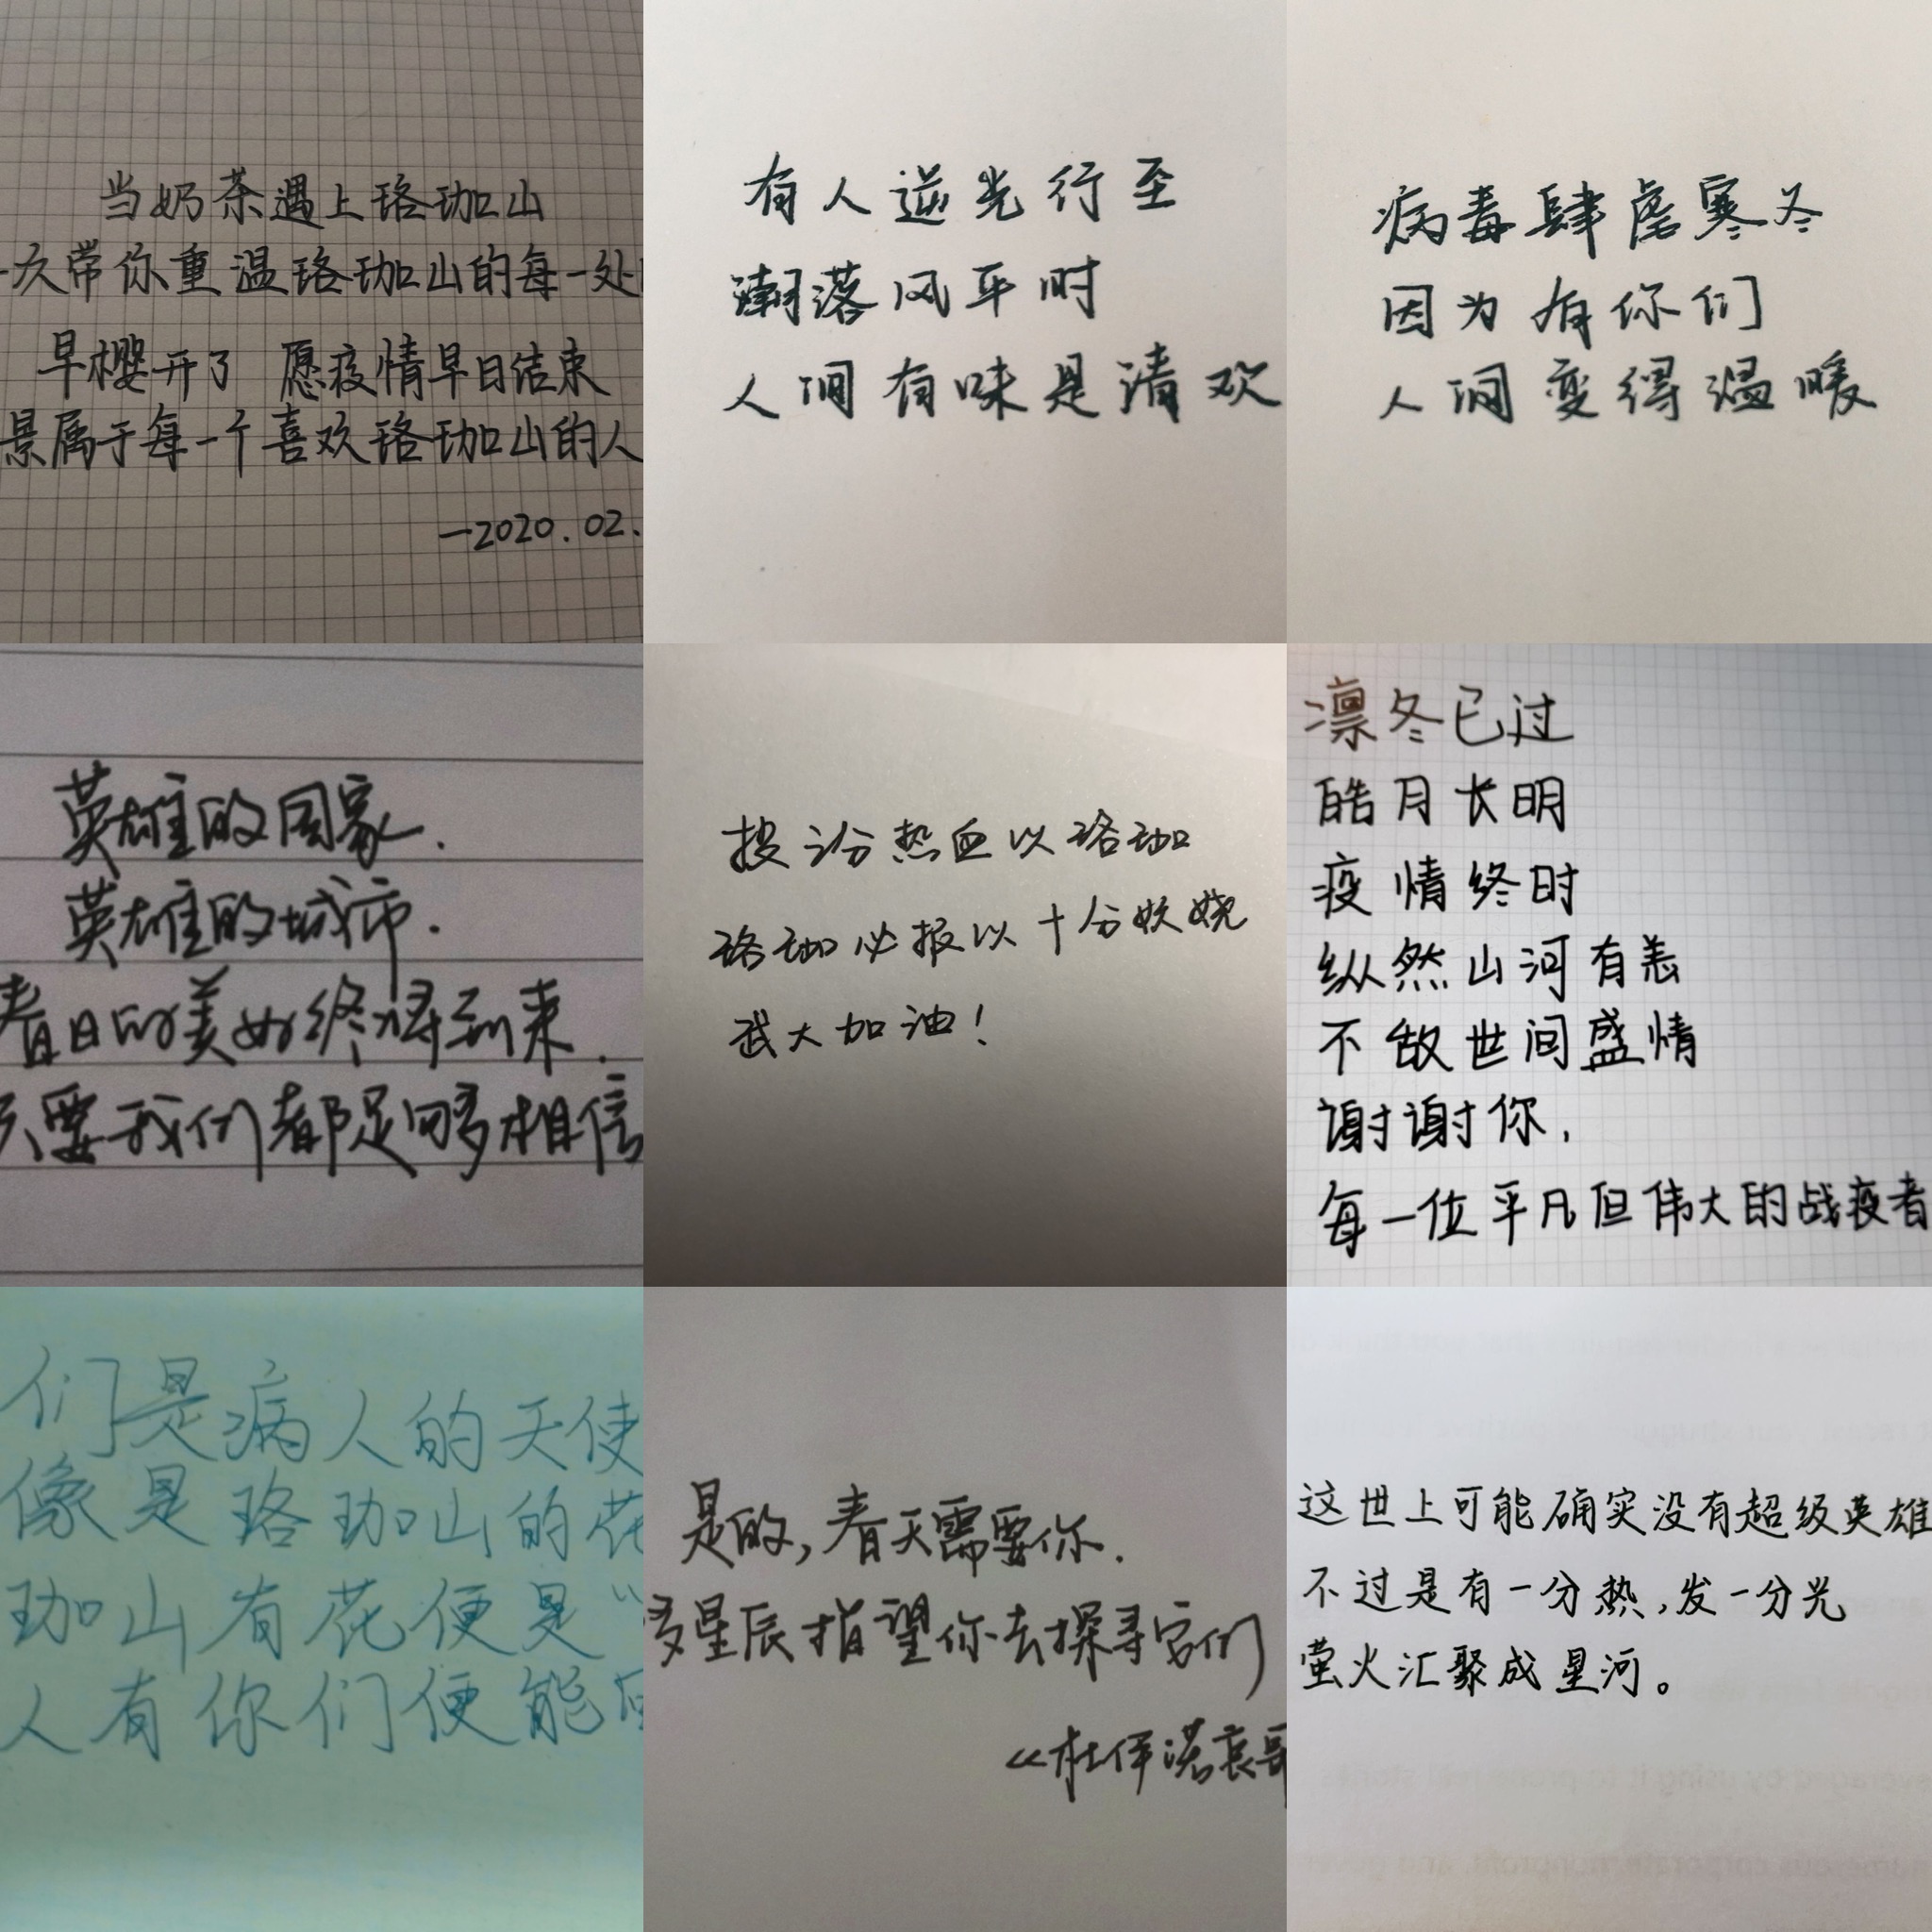 当奶茶遇上珞珈山
一次带你重温珞珈山的每一处
早樱开了 愿疫情早日结束
景属于每一个喜欢珞珈山的人
—2020.02.
有人逆光行至
潮落风平时
人间有味是清欢
病毒肆虐寒冬
因为有你们
人间变得温暖
英雄的国家.
英雄的城市.
春日的美好终将到来.
只要我们都足够相信
投 热血以珞珈
珞珈必报以十分妖娆
武大加油!
凛冬已过
皓月长明
疫情终时
纵然山河有恙
不敌世间盛情
谢谢你,
每一位平凡但伟大的战疫者
们是病人的天使
像是珞珈山的花
珈山有花便是“
人有你们便能
是的,春天需要你.
多星辰指望你去探寻它们
《杜伊诺哀哥
这世上可能确实没有超级英雄
不过是有一分热,发一分光
萤火汇聚成星河。